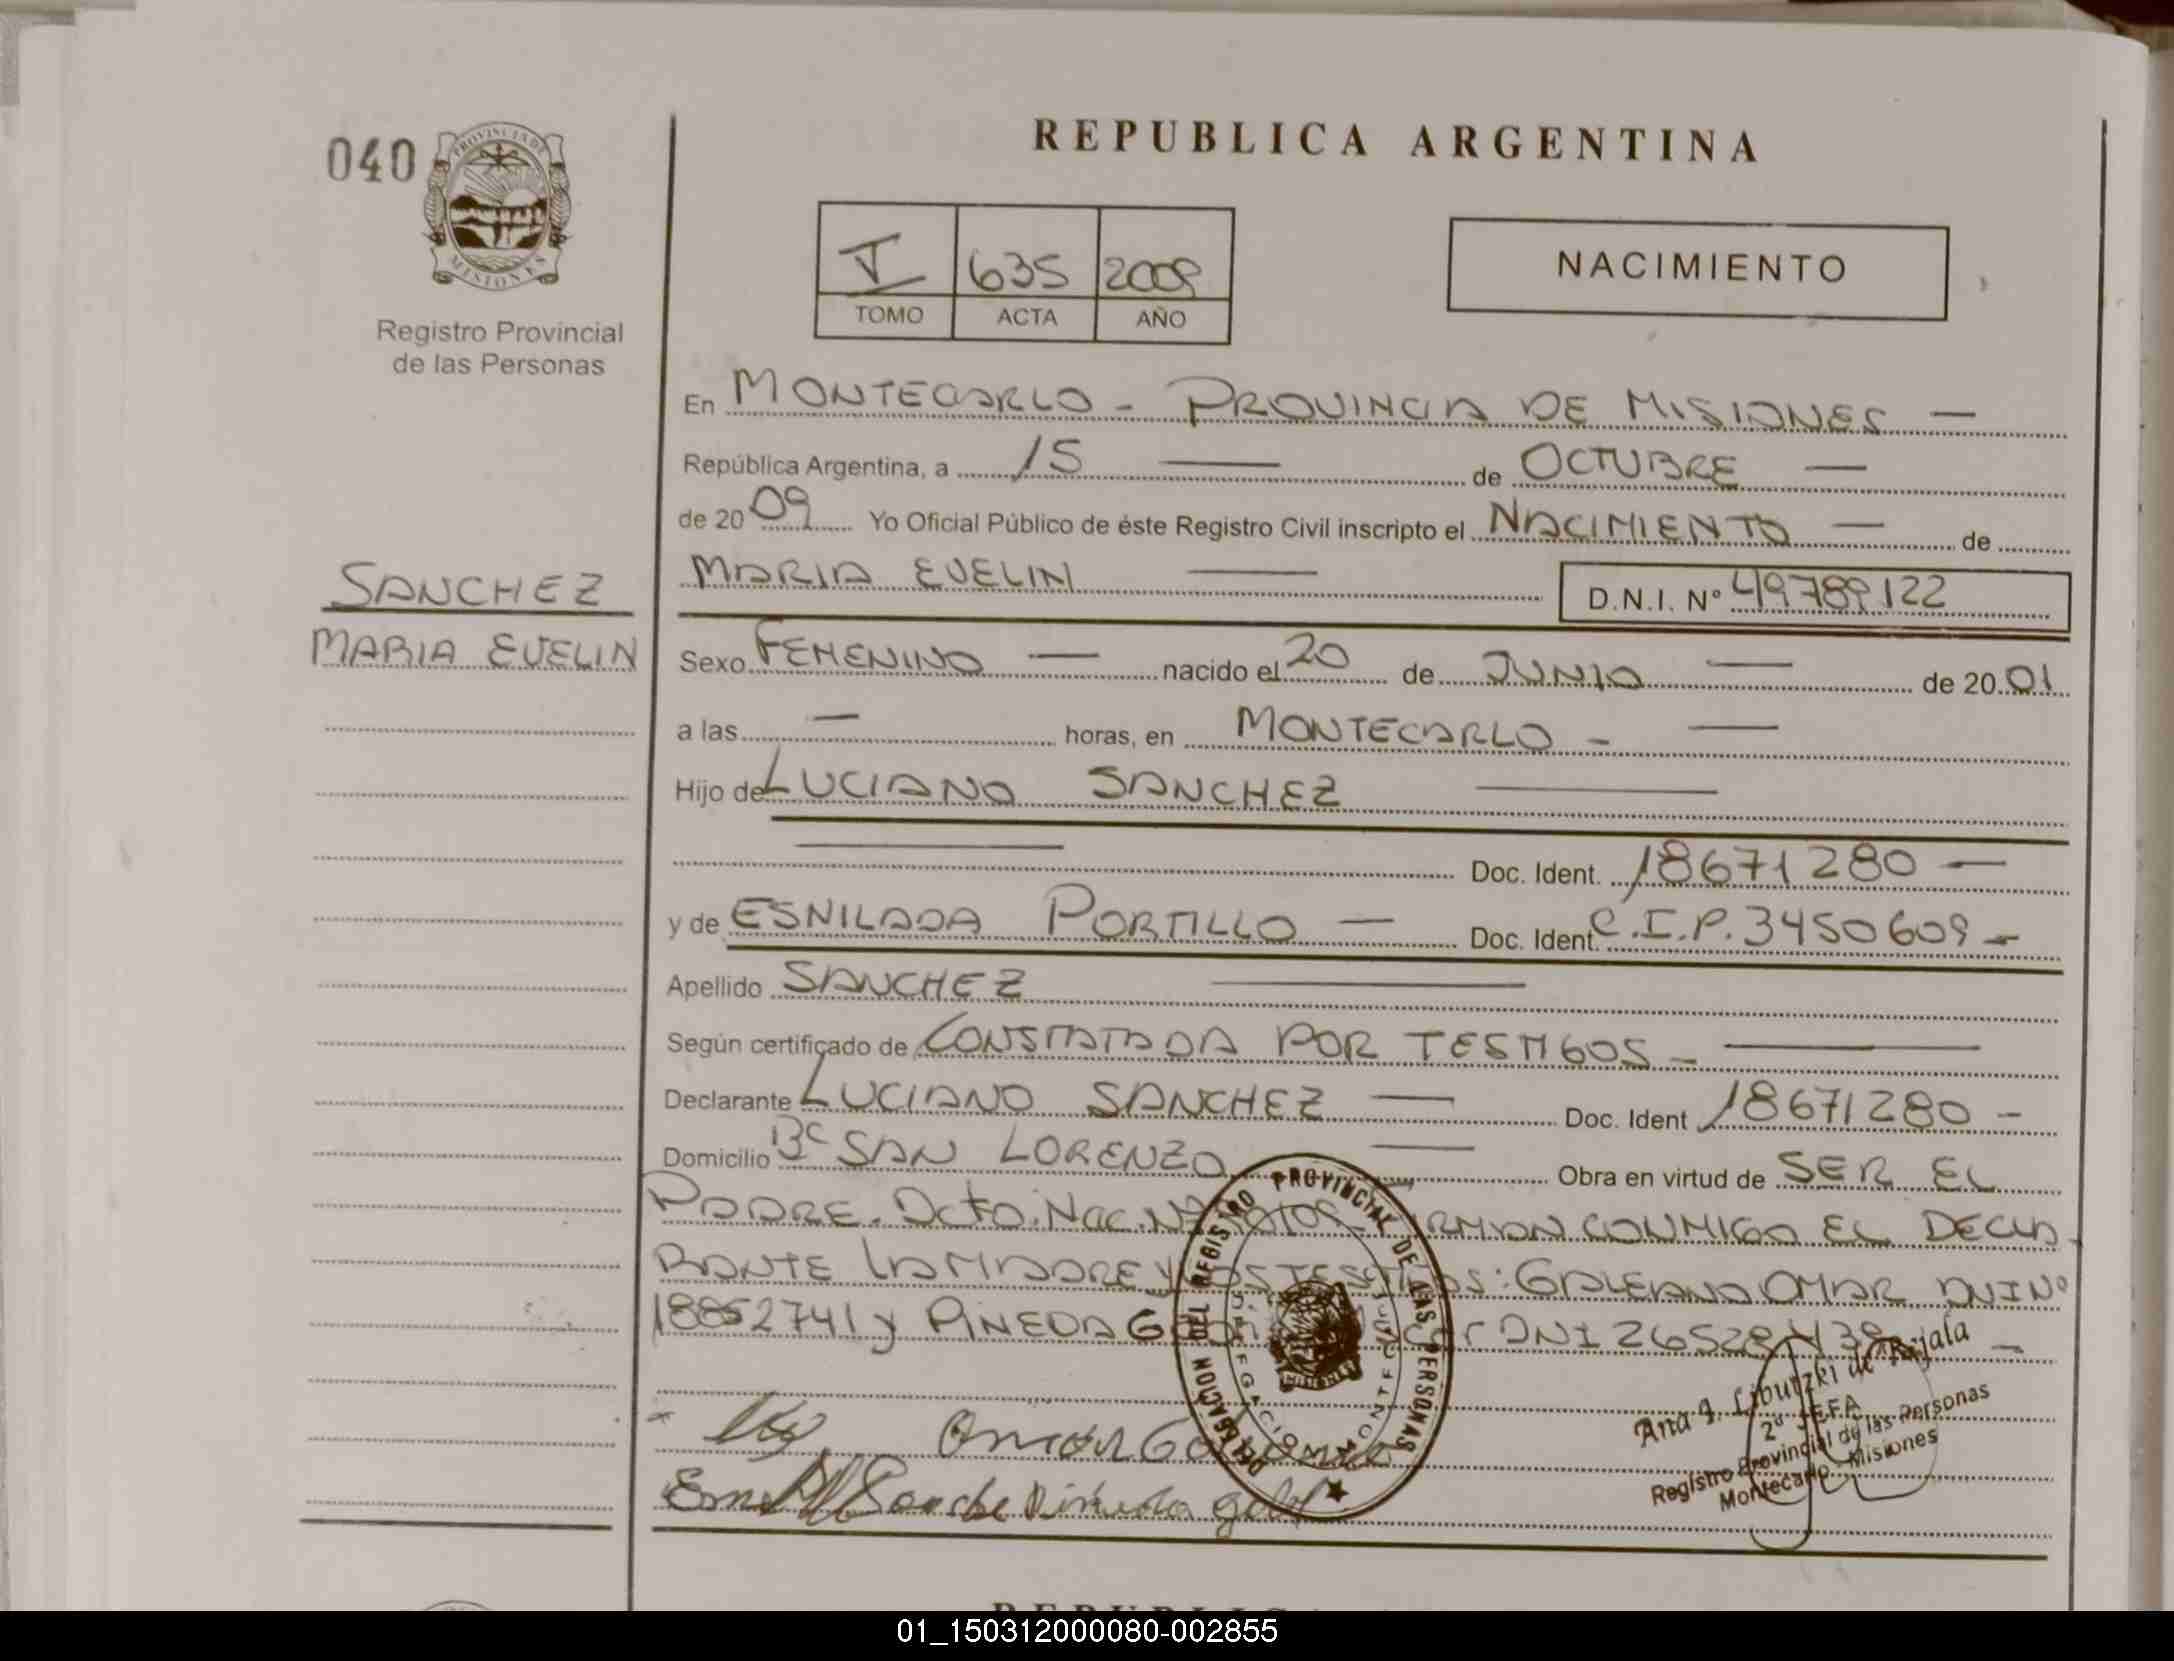 040
PROVINCIA DE
MISIONES
Registro Provincial
de las Personas
REPUBLICA ARGENTINA
I 635 2009
TOMO ACTA AÑO
NACIMIENTO
En MONTECARLO - PROVINCIA DE MISIONES —
República Argentina, a 15 — de OCTUBRE —
de 2009 Yo Oficial Público de éste Registro Civil inscripto el NACIMIENTO — de
MARIA EVELIN — D.N.I. Nº 49789122
SANCHEZ
MARIA EVELIN
Sexo FEMENINO — nacido el 20 de JUNIO — de 2001
a las — horas, en MONTECARLO - —
Hijo de LUCIANO SANCHEZ —
— Doc. Ident. 18671280 —
y de ESNILADA PORTILLO — Doc. Ident. C.I.P. 3450609 -
Apellido SANCHEZ —
Según certificado de CONSTATADA POR TESTIGOS - —
Declarante LUCIANO SANCHEZ — Doc. Ident 18671280 -
Domicilio Bº SAN LORENZO — Obra en virtud de SER EL
PADRE. Dcto. Nac. Nº FIRMAN CONMIGO EL DECLA-
RANTE LA MADRE Y LOS TESTIGOS: GALEANO OMAR DNI Nº
18852741 y PINEDA DNI
DELEGACION DEL REGISTRO PROVINCIAL DE LAS PERSONAS
Omar Galeano
Sanche
Ana I. Liputzki de Rijala
2º JEFA
Registro Provincial de las Personas
Montecarlo - Misiones
01_150312000080-002855